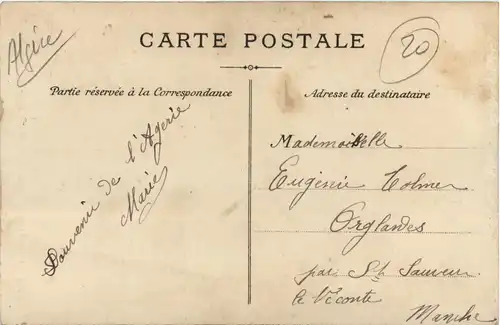 Algérie
20
CARTE POSTALE
Partie réservée à la Correspondance
Adresse du destinataire
Souvenir de l'Agerie
Marie
Mademoiselle
Eugénie
Orglandes
par St Sauveur
le Vicomte
Manche